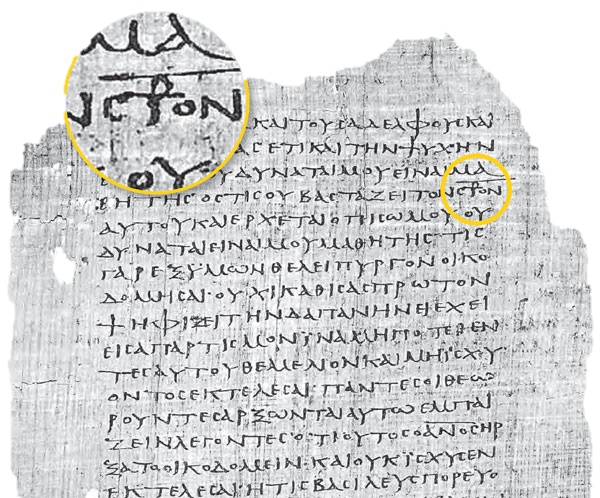 ΜΑ
ΝϹ⳨ΟΝ
ΟΥ
ΚΑΙΤΟΥϹΑΔΕΛΦΟΥϹΚΑΙ
ΑϹΕΤΙΚΑΙΤΗΝΨΥΧΗΝ
ΔΥΝΑΤΑΙΜΟΥΕΙΝΑΙΜΑ
ΘΗΤΗϹ ΟϹΤΙϹΟΥ ΒΑϹΤΑΖΕΙΤΟΝϹ⳨ΟΝ
ΑΥΤΟΥΚΑΙΕΡΧΕΤΑΙΟΠΙϹΩΜΟΥ ΟΥ
ΔΥΝΑΤΑΙΕΙΝΑΙΜΟΥΜΑΘΗΤΗϹ· ΤΙϹ
ΓΑΡΕΞΥΜΩΝΘΕΛΕΙΠΥΡΓΟΝΟΙΚΟ
ΔΟΜΗϹΑΙ·ΟΥΧΙΚΑΘΙϹΑϹΠΡΩΤΟΝ
ΨΗΦΙΖΕΙΤΗΝΔΑΠΑΝΗΝΕΙΕΧΕΙ
ΕΙϹΑΠΑΡΤΙϹΜΟΝ ΙΝΑΜΗΠΟΤΕΘΕΝ
ΤΕϹΑΥΤΟΥΘΕΜΕΛΙΟΝΚΑΙΜΗΙϹΧΥ
ΟΝΤΟϹΕΚΤΕΛΕϹΑΙ·ΠΑΝΤΕϹΟΙΘΕΩ
ΡΟΥΝΤΕϹΑΡΞΩΝΤΑΙΑΥΤΩΕΜΠΑΙ
ΖΕΙΝΛΕΓΟΝΤΕϹΟΤΙΟΥΤΟϹΟΑΝΟϹΗΡ
ΞΑΤΟΟΙΚΟΔΟΜΕΙΝ·ΚΑΙΟΥΚΙϹΧΥϹΕΝ
ΕΚΤΕΛΕϹΑΙ·ΗΤΙϹΒΑϹΙΛΕΥϹΠΟΡΕΥΟ